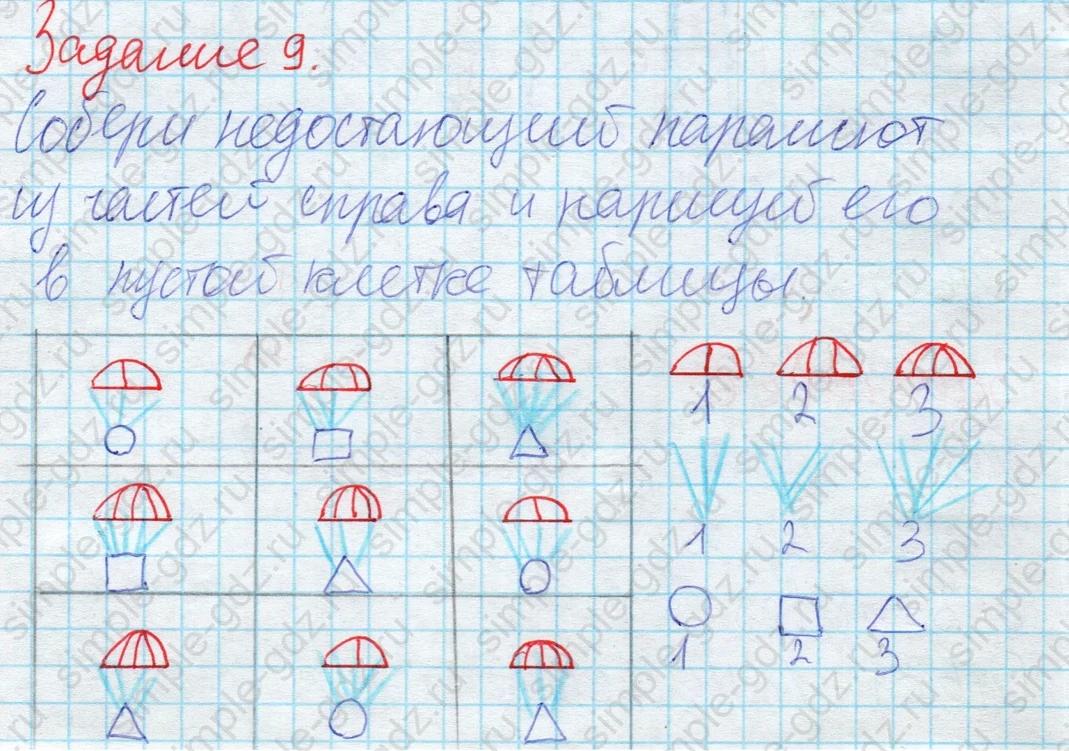 Задание 9.
Собери недостающий парашют
из частей справа и нарисуй его
в пустой клетке таблицы.
1 2 3
1 2 3
1 2 3
simple-gdz.ru